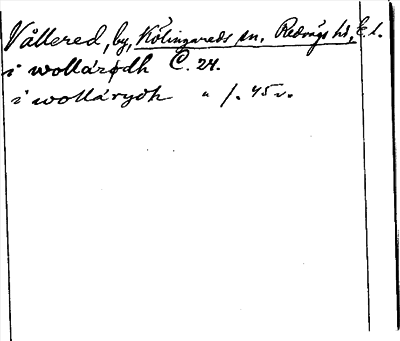 Vållered, by, Kölingareds sn, Redvägs hd, E.l.
i wollarødh C. 24.
i wollárydh " f. 45 v.